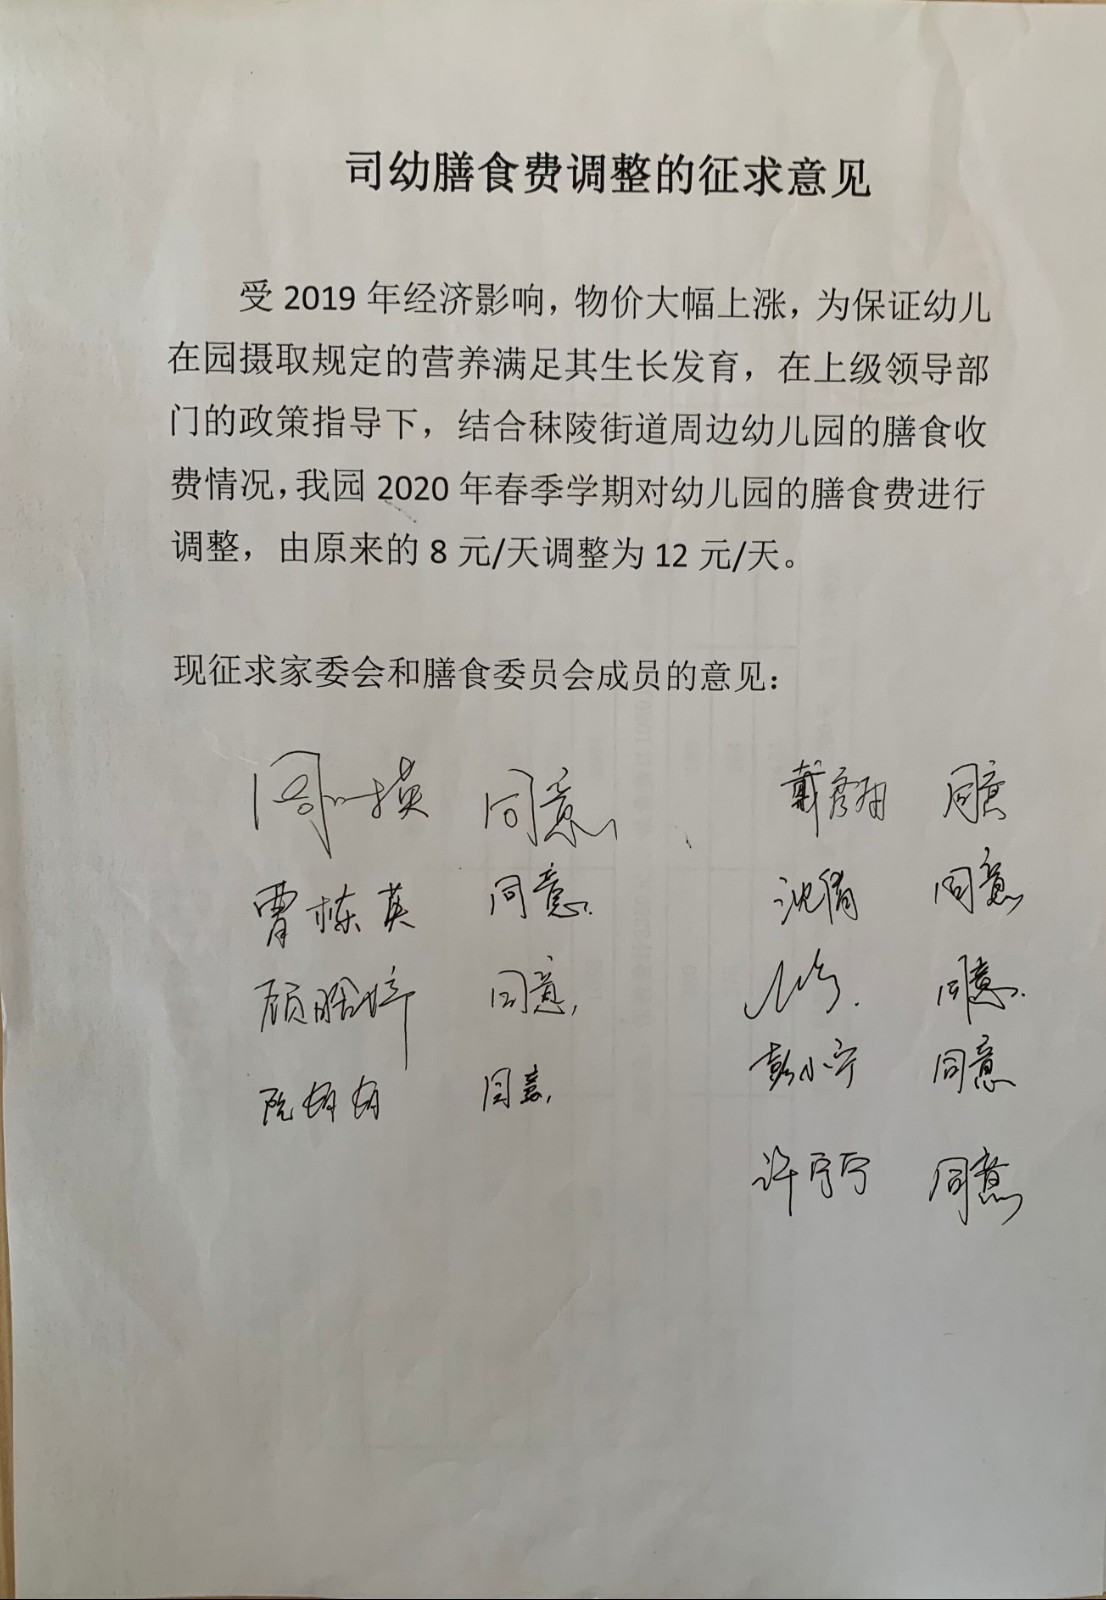 司幼膳食费调整的征求意见
受 2019 年经济影响，物价大幅上涨，为保证幼儿
在园摄取规定的营养满足其生长发育，在上级领导部
门的政策指导下，结合秣陵街道周边幼儿园的膳食收
费情况，我园 2020 年春季学期对幼儿园的膳食费进行
调整，由原来的 8 元/天调整为 12 元/天。
现征求家委会和膳食委员会成员的意见：
同意 同意
曹栋英 同意. 沈倩 同意
同意, 同意.
同意, 彭小宁 同意
同意